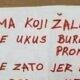 MA KOJI ŽAL
E UKUS BURA
PROM
E ZATO JER